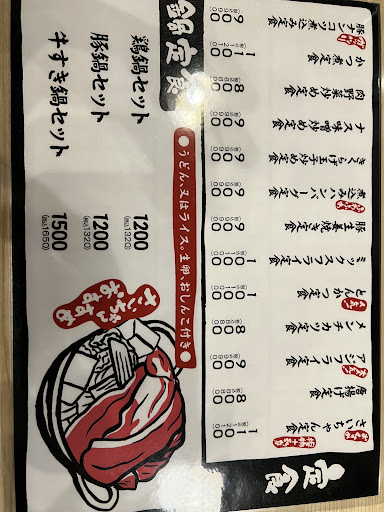 定食
さいちゃん定食 1100 (税込1210)
唐揚げ定食 800 (税込880)
アジフライ定食 900 (税込990)
メンチカツ定食 800 (税込880)
とんかつ定食 1000 (税込1100)
ミックスフライ定食 1000 (税込1100)
豚生姜焼き定食 900 (税込990)
煮込みハンバーグ定食 900 (税込990)
きくらげ玉子炒め定食 900 (税込990)
ナス味噌炒め定食 900 (税込990)
肉野菜炒め定食 800 (税込880)
かつ煮定食 1100 (税込1210)
豚ナンコツ煮込み定食 900 (税込990)
鍋定食
●うどん、又はライス。生卵、おしんこ付き●
鶏鍋セット 1200 (税込1320)
豚鍋セット 1200 (税込1320)
牛すき鍋セット 1500 (税込1650)
さいちゃん
おすすめ